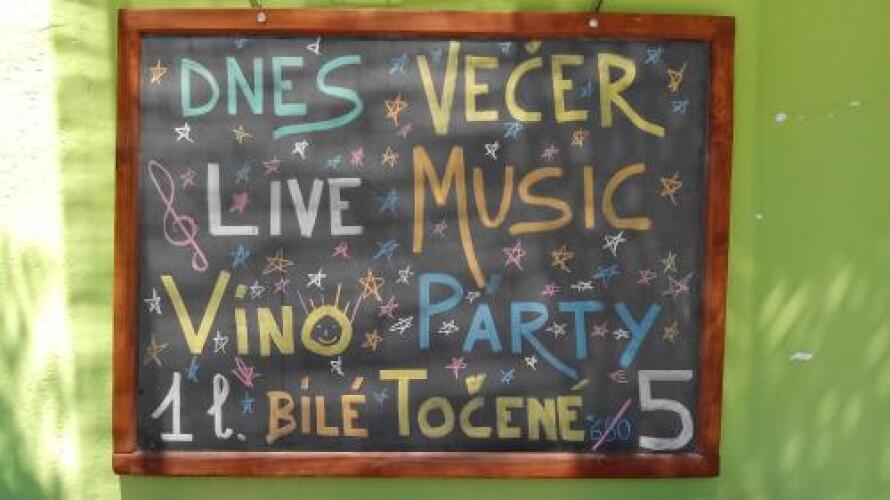 DNES VEČER
LIVE MUSIC
VÍNO PÁRTY
1 l. BÍLÉ TOČENÉ 5